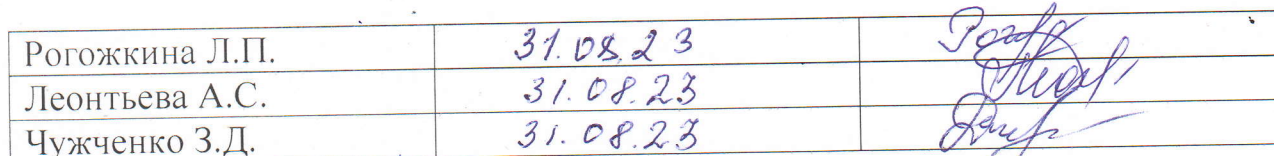 Рогожкина Л.П. 31.08.23
Леонтьева А.С. 31.08.23
Чужченко З.Д. 31.08.23